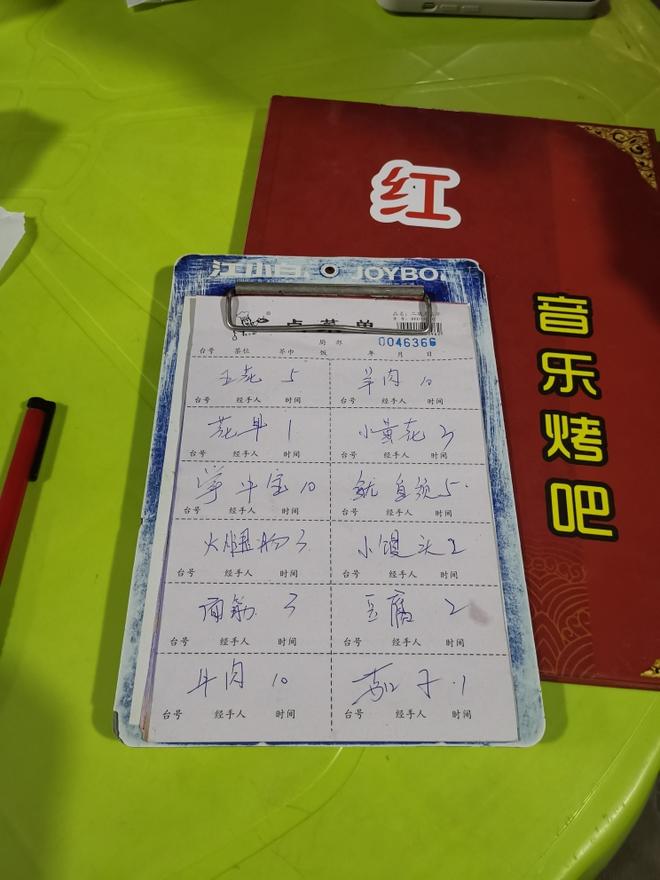 红
音乐烤吧
江小白 JOYBO
点菜单
0046366
台号 茶位 茶巾 饭 年 月 日
五花 5 羊肉 10
台号 经手人 时间 台号 经手人 时间
花 1 小黄花 3
台号 经手人 时间 台号 经手人 时间
掌中宝 10 鱿 5
台号 经手人 时间 台号 经手人 时间
火腿肠 3 小馒头 2
台号 经手人 时间 台号 经手人 时间
面筋 3 豆腐 2
台号 经手人 时间 台号 经手人 时间
牛肉 10 茄子 1
台号 经手人 时间 台号 经手人 时间